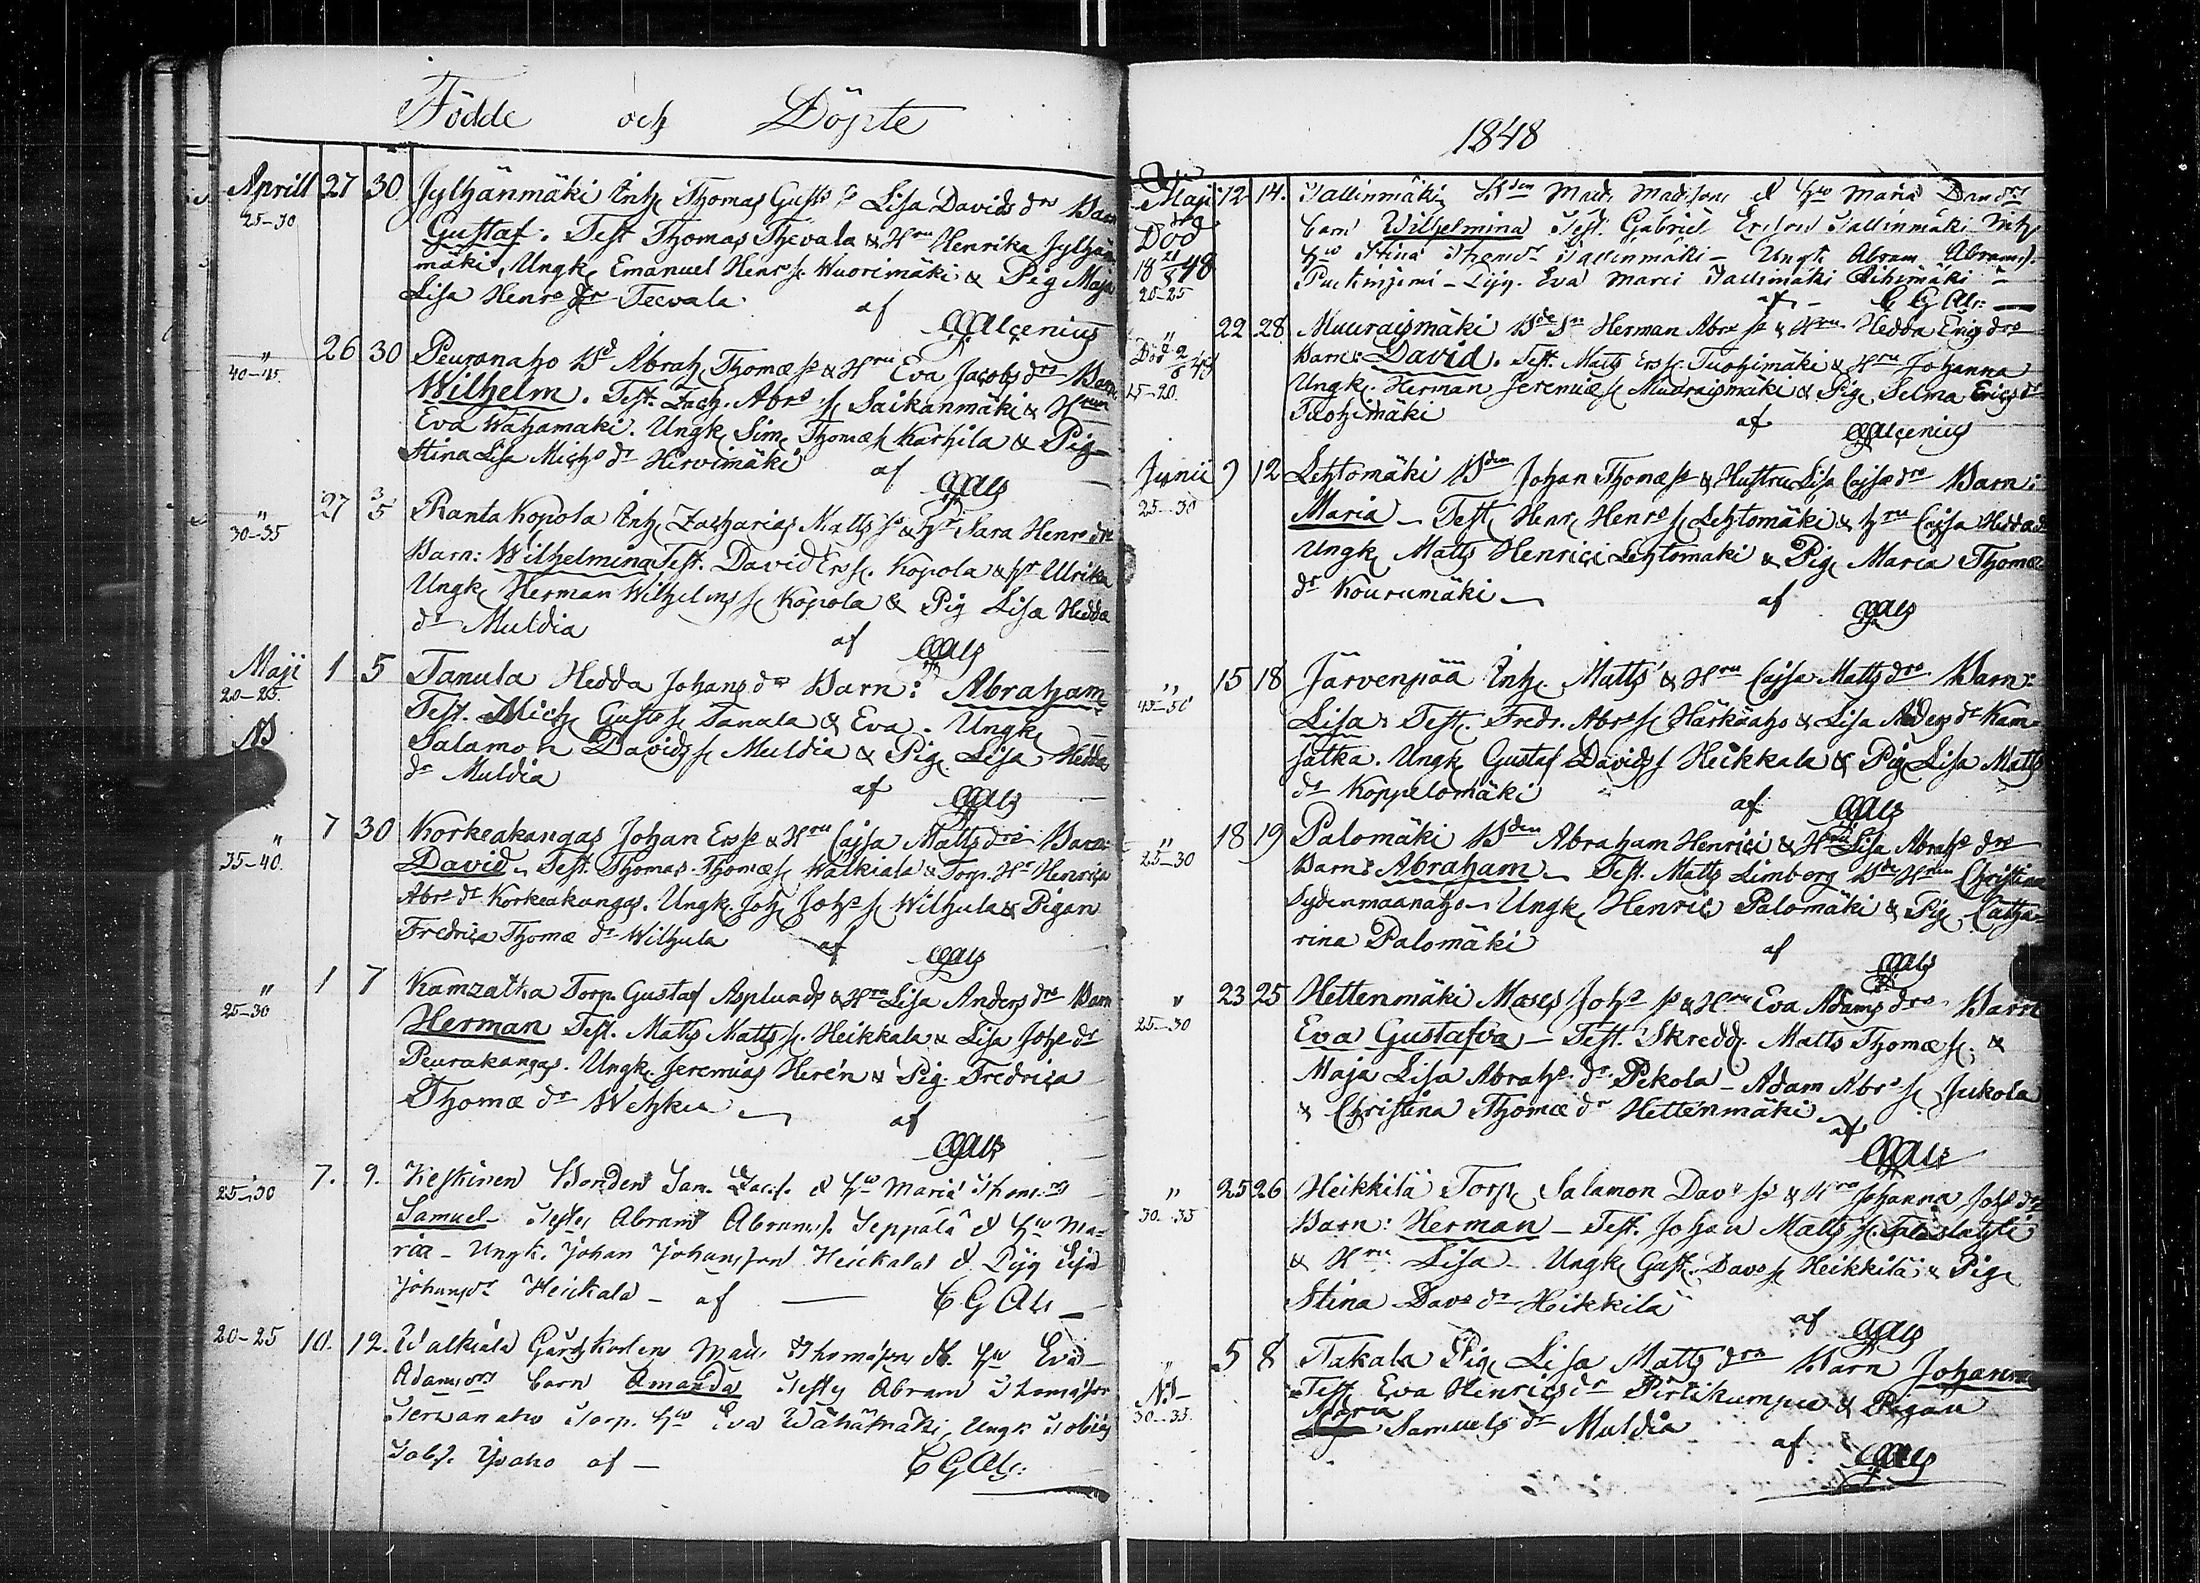 Födde och Döpte
Aprill 27 30 Jylhänmäki Inh Thomas Gustss Lisa Davids drs Barn
25-30 Gustaf. Test Thomas Thevala & Hru Henrika Jylhän
mäki, Ungk Emanuel Henrs s. Wuorimäki & Pig Maja
Lisa Henrs dr Teevala af
CGAlcenius
" 26 30 Peuranaho Bd Abrah Thomæ ss & Hru Eva Jacobs drs Barn
40-45. Wilhelm. Test. Zach. Abrs s. Saikanmäki & Hrun
Eva Wähämäki. Ungk Sim Thomæ s Karhila & Pig
Stina Lisa Michs dr Hirvimäki af CGAls
" 27 3/5 Ranta Kopola Inh Zacharias Matts ss & Hr Sara Henrs drs
30-35 Barn: Wilhelmina Test. David Ers s. Kopola & Hr Ulrika
Ungk Herman Wilhelms s Kopola & Pig Lisa Hedda
dr Muldia af CGAls
Maji 1 5 Tanula Hedda Johans drs Barn: Abraham
20-25. Test. Mich Gustss Tanula & Eva. Ungk
Salamon Davids s Muldia & Pig Lisa Hedda
dr Muldia af CGAls
" 7 30 Korkeakangas Johan Ers ss & Hru Cajsa Matts drs Barn:
35-40. David. Test. Thomas Thomæ s. Walkiala & Torp. Hr Henrica
Abrs dr Korkeakangas. Ungk. Joh Johs s Wilhula & Pigan
Fredrica Thomæ dr Wilhula af CGAls
" 1 7 Kamzatka Torp. Gustaf Asplunds & Hru Lisa Anders drs Barn
25-30 Herman Test. Matts Matts s. Heikkala & Lisa Johs dr
Peurakangas. Ungk. Jeremias Herén & Pig. Fredrica
Thomæ dr Wehkeu af
CGAls
25-30 7. 9. Keskinen Bonden Sam. Zacs. & Hu Maria Thom. drs
Samuel Testes Abram Abrams s. Seppälä & Hu Ma-
ria - Ungk. Johan Johansson Heickala & Pig Lisa
Johansdr Heickala - af CGAls
20-25 10. 12. Walkiala Matts Thomasson & Hu Eva
Adamsdrs barn Amanda Testes Abram Thomasson
Terwanaho Torp. Hu Eva Wähämäki, Ungk Tobias
Tobs. Ysaho af - CGAls:
1848
Maji 12 14. Tallinmäki Bden Matts Mattsson & Hu Maria Dandrs
Död barn Wilhelmina Test. Gabriel Ericson Tallinmäki Inh
18 21/5 48 Hu Stina Thomdr Tallinmäki - Ungk Abram Abrams s.
20-25 - Pig. Eva Marci Tallimäki
af - CGAls:
" 22 28 Muuraismäki Bde Sn Herman Abra ss & Hru Hedda Erics drs
Död 2/6 48 Barn: David. Test. Matts Ers s. Tuohimäki & Hru Johanna
15-20. Ungk. Herman Jeremiæ s Muuraismäki & Pig Selma Erics dr
Tuohimäki af CGAlcenius
Junii 9 12 Lehtomäki Bden Johan Thomæ ss & Hustru Lisa Cajsæ drs Barn:
25-30 Maria - Test Henr Henrs s Lehtomäki & Hru Cajsa Hedda dr
Ungk Matts Henrici Lehtomäki & Pig Maria Thomæ
dr Kourumäki af CGAls
" 15 18 Järvenpää Inh Matts & Hru Cajsa Matts drs Barn:
45-50 Lisa. Test. Fredr. Abrs s Härkäaho & Lisa Anders dr Kam-
satka. Ungk Gustaf Davids s Heikkala & Pig Lisa Matts
dr Koppelomäki af CGAls
" 18 19 Palomäki Bden Abraham Henrici & Hru Lisa Abrahs drs
25-30 Barn: Abraham. Test. Matts Limberg Bde Hrun Christina
Sydenmaanaho. Ungk Henric Palomäki & Pig Catha-
rina Palomäki af CGAls
" 23 25 Hettenmäki Moses Johs ss & Hru Eva Adams drs Barn
25-30 Eva Gustafva - Test. Skredd. Matts Thomæ s. &
Maja Lisa Abrahs dr Pekola - Adam Abrs s Jukola
& Christina Thomæ dr Hettenmäki af
CGAls
" 25 26 Heikkilä Torp Salamon Davs ss & Hru Johanna Johs drs
30-35 Barn: Herman - Test. Johan Matts s.
& Hru Lisa - Ungk Gust. Davs s Heikkilä & Pig
Stina Davs dr Heikkilä af CGAls
" 5 8 Takala Pig Lisa Matts drs Barn Johanna
NB Test Eva Henrics dr Pirttikumpu & Pigan
30-35. Maria Samuels dr Muldia af CGAls